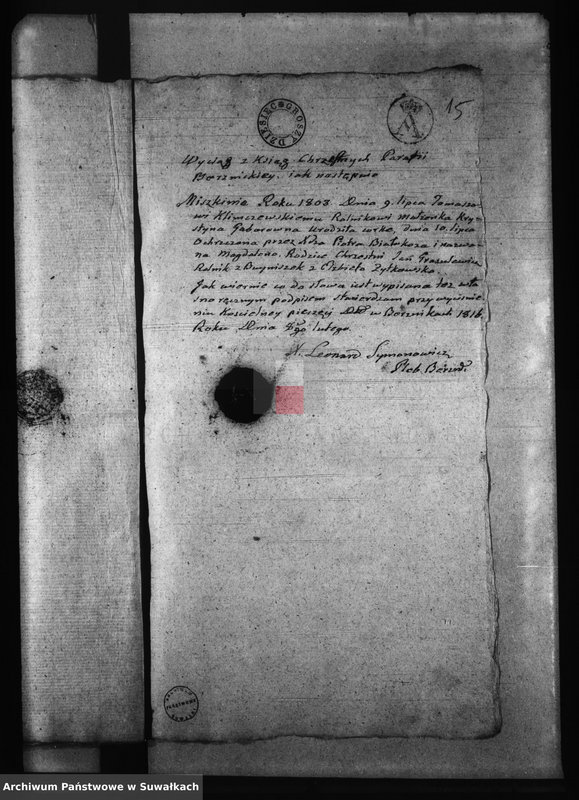 DZIESIĘĆ GROSZY
15
Wyciąg z Ksiąg Chrzestnych Parafii
Berznickiey, iak następuie
Miszkinie Roku 1803. Dnia 9. lipca Tomaszo-
wi Klimczewskiemu Rolnikowi Małżonka Kry-
styna Gabarowna Urodziła corkę, dnia 10. lipca
Ochrzczona przez Xdza Piotra i nazwa-
na Magdalena. Rodzice Chrzestni Jan Grazulewicz
Rolnik z i Elżbieta Zytkowska.
Jak wiernie co do słowa iest wypisana toż wła-
snoręcznym podpisem stwierdzam przy wyciśnie-
niu Kościelney pieczęci Dat w Berznikach 1816
Roku Dnia lutego.
X. Leonard Symonowicz
Pleb. Berzni.
Archiwum Państwowe w Suwałkach